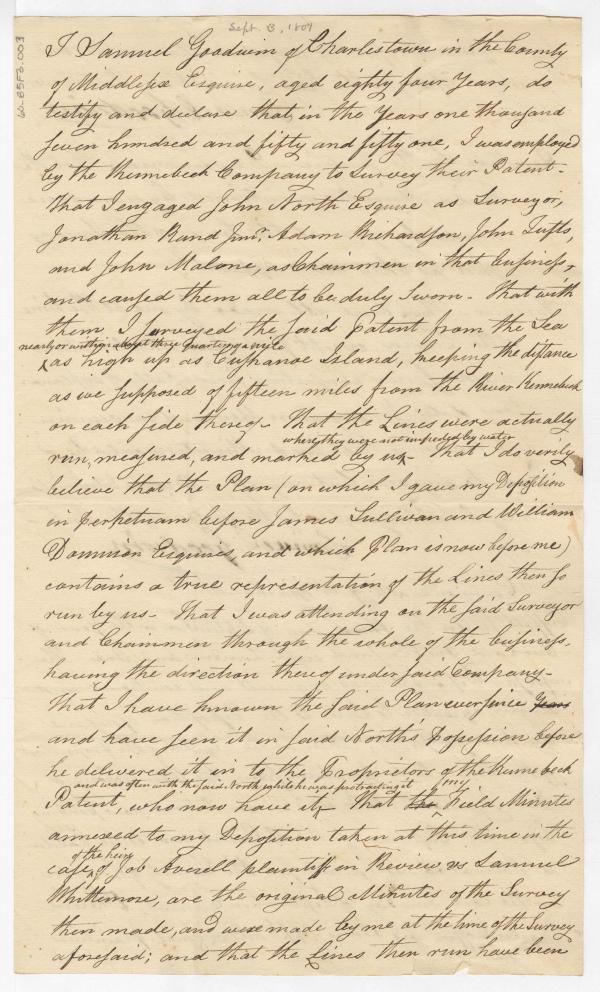 Sept. 3, 1801
60-85F6.003
I Samuel Goodwin of Charlestown in the County
of Middlesex Esquire, aged eighty four Years, do
testify and declare that, in the Years one thousand
seven hundred and fifty and fifty one, I was employed
by the Kennebeck Company to survey their Patent-
That I engaged John North Esquire as Surveyor,
Jonathan Rand Junr. Adam Richardson, John Tufts,
and John Malone, as Chainmen in that business,
and caused them all to be duly sworn- That with
them I surveyed the said Patent from the Sea
nearly or within about three quarters of a mile
^ as high up as Cushanoc Island, keeping the distance
as we supposed of fifteen miles from the River Kennebeck
on each side thereof- That the Lines were actually
where they were not impeded by water
run, measured, and marked by us^- That I do verily
believe that the Plan (on which I gave my Deposition
in Perpetuam before James Sullivan and William
Donnison Esquires, and which Plan is now before me)
contains a true representation of the Lines then so
run by us- That I was attending on the said Surveyor
and Chainmen through the whole of the business,
having the direction thereof under said Company-
That I have known the said Plan ever since Years
and have seen it in said North's Possession before
he delivered it in to the Proprietors of the Kennebeck
and was often with the said North while he was protracting it
my
Patent, who now have it^- That the ^ Field Minutes
annexed to my Deposition taken at this time in the
of the heirs
case ^ of Job Averell plaintiffs in Review vs Samuel
Whittemore, are the original Minutes of the Survey
then made, and were made by me at the time of the Survey
aforesaid; and that the Lines then run have been